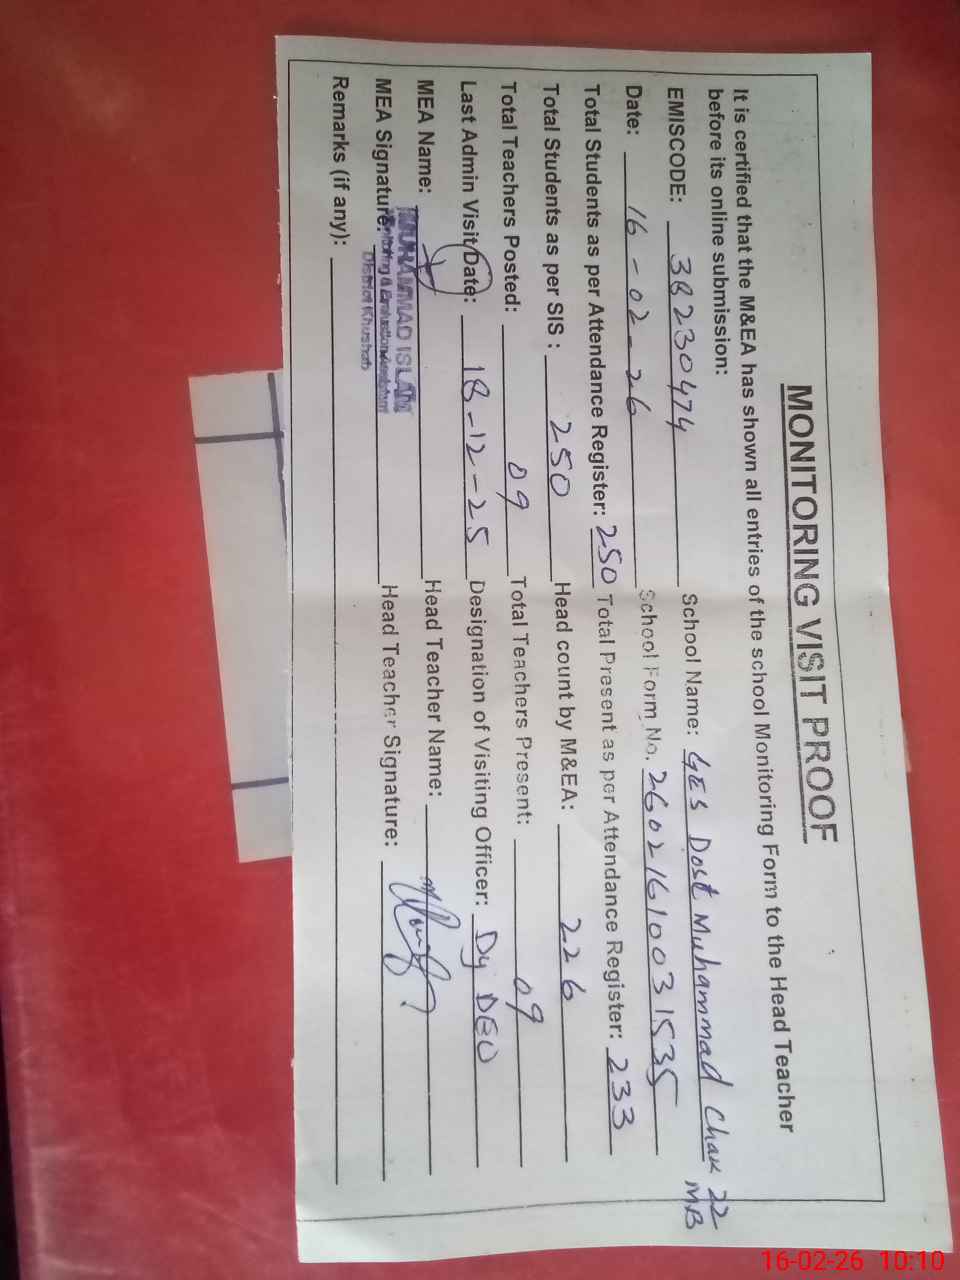 MONITORING VISIT PROOF
It is certified that the M&EA has shown all entries of the school Monitoring Form to the Head Teacher
before its online submission:
EMISCODE: 38230474 School Name: GES Dost Muhammad Chak 22 MB
Date: 16-02-26 School Form No. 26021610031535
Total Students as per Attendance Register: 250 Total Present as per Attendance Register: 233
Total Students as per SIS : 250 Head count by M&EA: 226
Total Teachers Posted: 09 Total Teachers Present: 09
Last Admin Visit Date: 18-12-25 Designation of Visiting Officer: Dy DEO
MEA Name: MUHAMMAD ISLAM Head Teacher Name:
MEA Signature: Monitoring & Evaluation Assistant Head Teacher Signature:
District Khushab
Remarks (if any):
16-02-26 10:10